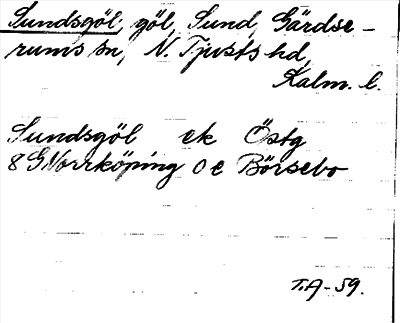 Sundsgöl, göl, Sund, Gärdse-
rums sn, N. Tjusts hd,
Kalm. l.
Sundsgöl ek Östg
8G Norrköping 0e Börsebo
T.A-59.